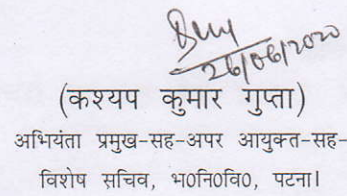 26/06/2020
(कश्यप कुमार गुप्ता)
अभियंता प्रमुख-सह-अपर आयुक्त-सह-
विशेष सचिव, भ०नि०वि०, पटना।